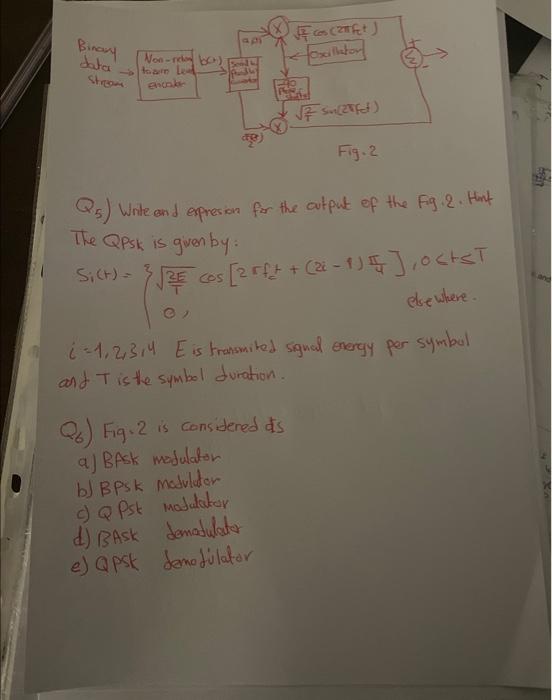 Binary
data
stream
Non-return
to zero level
encoder
b(t)
√2/T cos(2πfct)
Oscillator
√2/T sin(2πfct)
+
Σ
-
Fig.2
Q5) Write and expresion for the output of the Fig.2. Hint
The QPSK is given by:
Si(t) = { √2E/T cos [2πfct + (2i - 1) π/4], 0<t≤T
0, elsewhere.
i=1,2,3,4 E is transmited signal energy per symbol
and T is the symbol duration.
Q6) Fig.2 is considered as
a) BASK modulator
b) BPSK modulator
c) QPSK modulator
d) BASK demodulator
e) QPSK demodulator